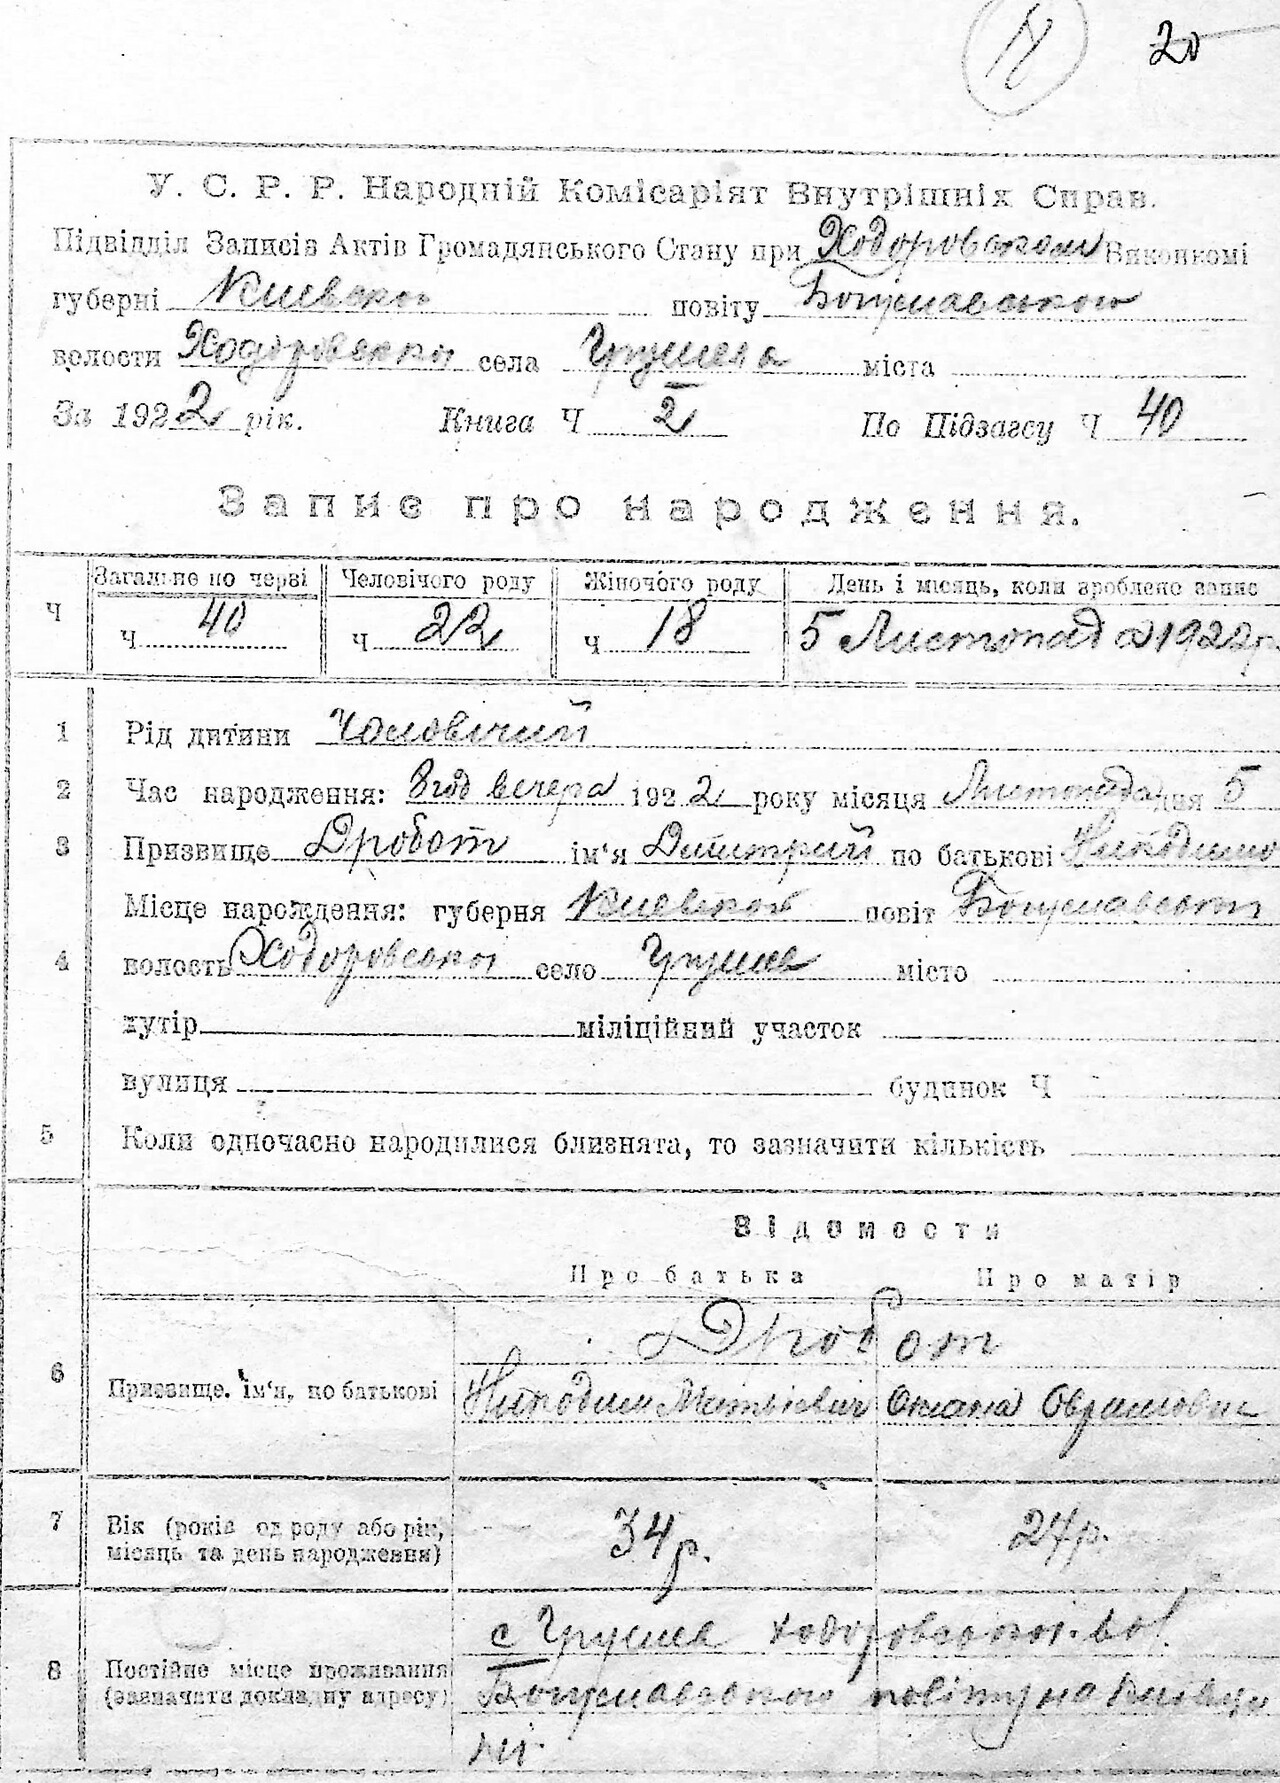 20
У. С. Р. Р. Народній Комісаріят Внутрішніх Справ.
Підвідділ Записів Актів Громадянського Стану при Ходоровском Виконкомі
губерні Киевскої повіту Богуславського
волости Ходоровскої села Грушева міста
За 1922 рік. Книга Ч 2 По Підзагсу Ч 40
Запис про народження.
Загальне по черві Человічого роду Жіночого роду День і місяць, коли зроблено запис
Ч Ч 40 Ч 22 Ч 18 5 Листопада 1922 р.
1 Рід дитини Чоловічий
2 Час народження: 8 год вечера 1922 року місяця Листопада дня 5
3 Призвище Дробот ім'я Димитрий по батькові Никодимо
Місце народження: губерня Киевской повіт
4 волость Ходоровської село Грушев місто
хутір міліційний участок
вулиця будинок Ч
5 Коли одночасно народилися близнята, то зазначити кількість
Відомости
Про батька Про матір
Дробот
6 Призвище, ім'я, по батькові Никодим Матвієвич Оксана
7 Вік (років од роду або рік, 34 р. 24 р.
місяць та день народження)
с Грушев Ходоровської вол.
8 Постійне місце проживання
(зазначати докладну адресу) Богуславского повіту на Киівщи
ні.